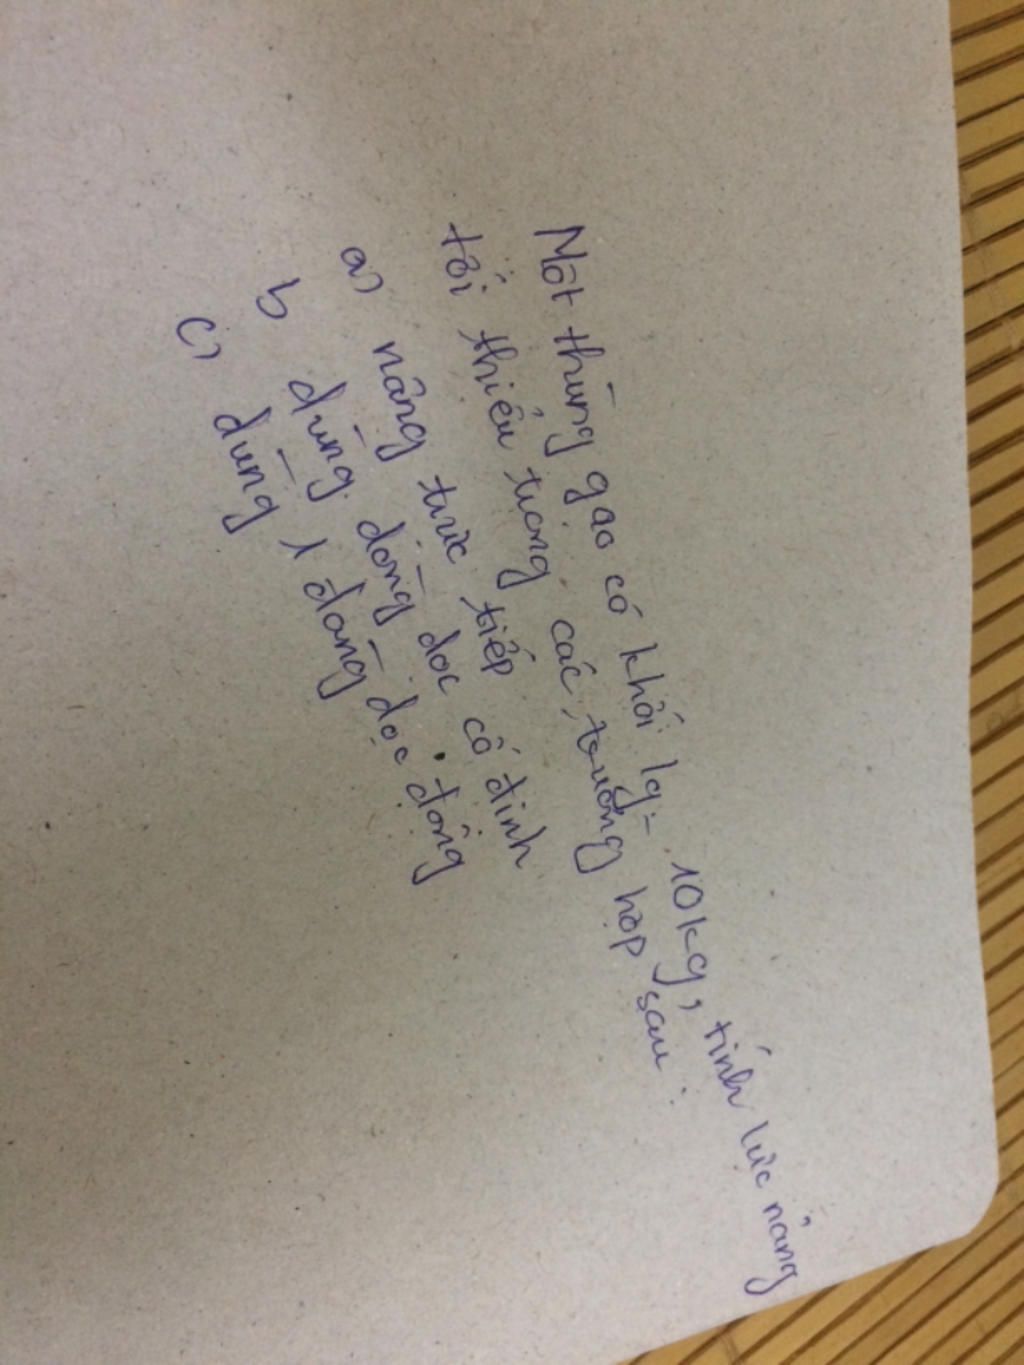 Một thùng gạo có khối lg = 10kg, tính lực nâng
tối thiểu trong các trường hợp sau :
a) nâng trực tiếp
b dùng dòng dọc cố định
c) dùng 1 dòng dọc động